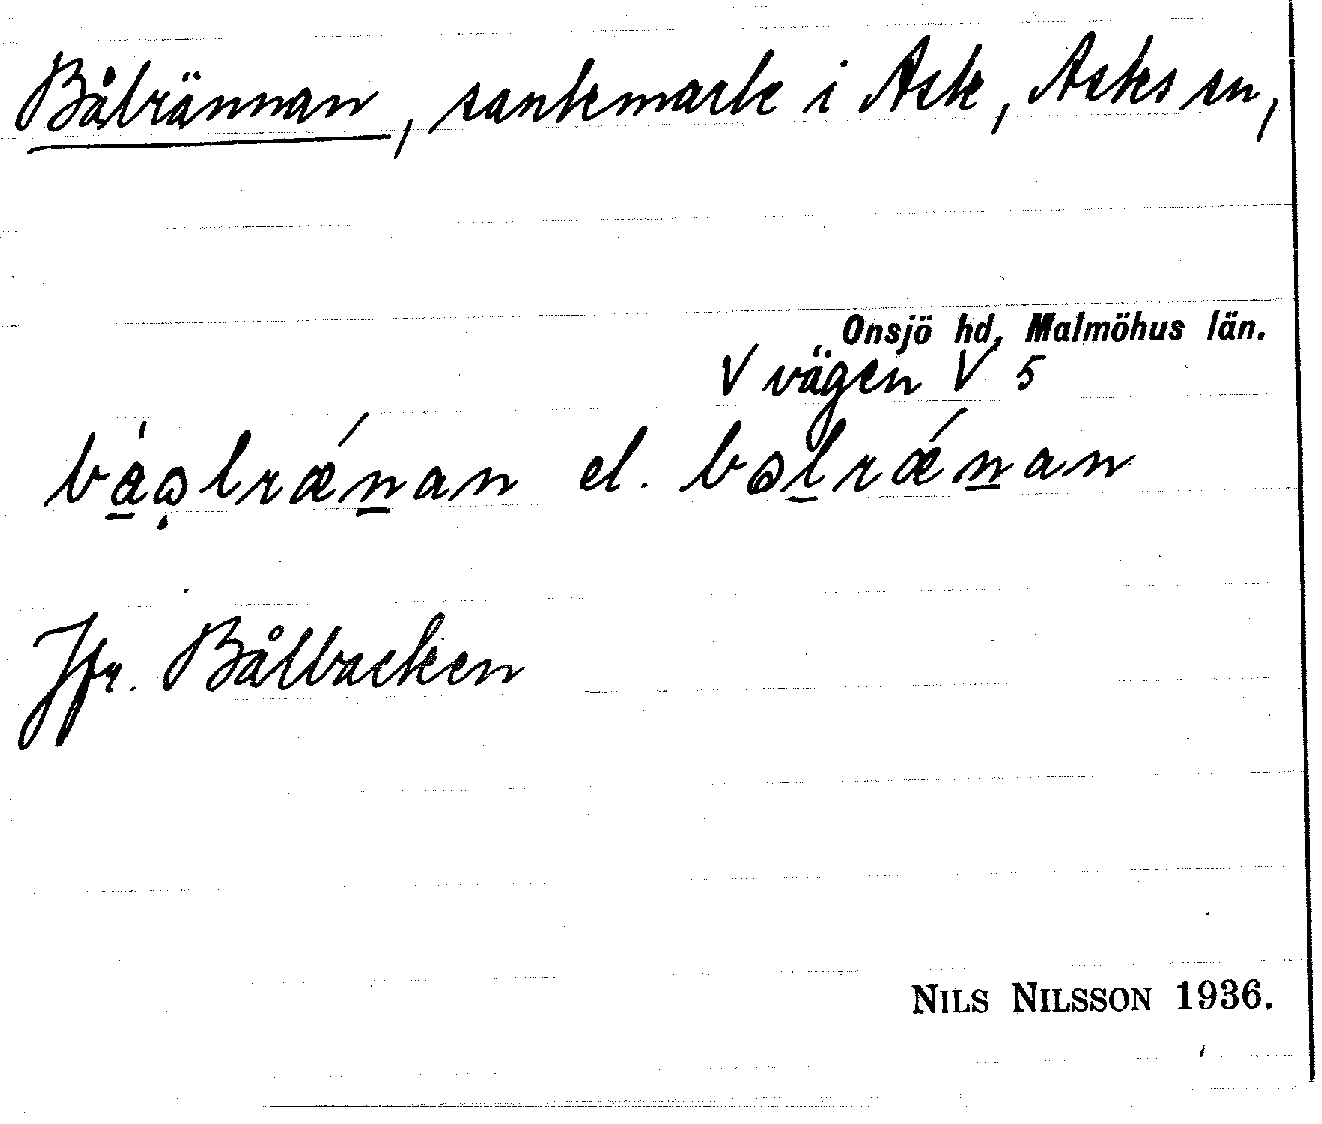 Bålrännan, sankmark i Ask, Asks sn,
Onsjö hd, Malmöhus län.
V vägen V 5
bàǫlrǽnan el. bǫlrǽnan
Jfr. Bålbacken
NILS NILSSON 1936.